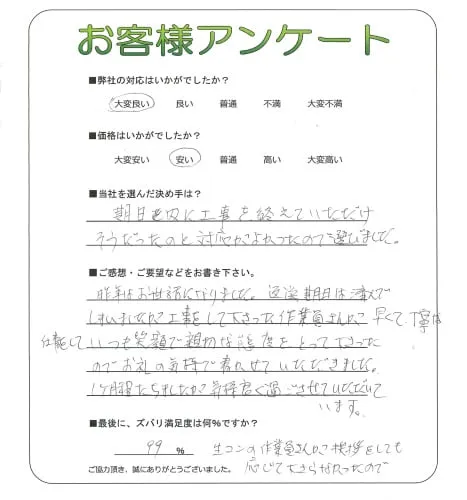 お客様アンケート
■弊社の対応はいかがでしたか？
大変良い 良い 普通 不満 大変不満
■価格はいかがでしたか？
大変安い 安い 普通 高い 大変高い
■当社を選んだ決め手は？
期日迄内に工事を終えていただけ
そうだったのと対応がよかったので選びました。
■ご感想・ご要望などをお書き下さい。
昨年はお世話になりました。返送期日は済んで
しまいましたが工事して下さった作業員さんが早くて丁寧な
仕事していつも笑顔で親切な態度をとって下さった
のでお礼の気持で書かせていただきました。
1ヶ月程たちましたが気持良く過ごさせていただいて
います。
■最後に、ズバリ満足度は何%ですか？
99 % 生コンの作業員さんが挨拶をしても
ご協力頂き、誠にありがとうございました。 応じて下さらなかったので